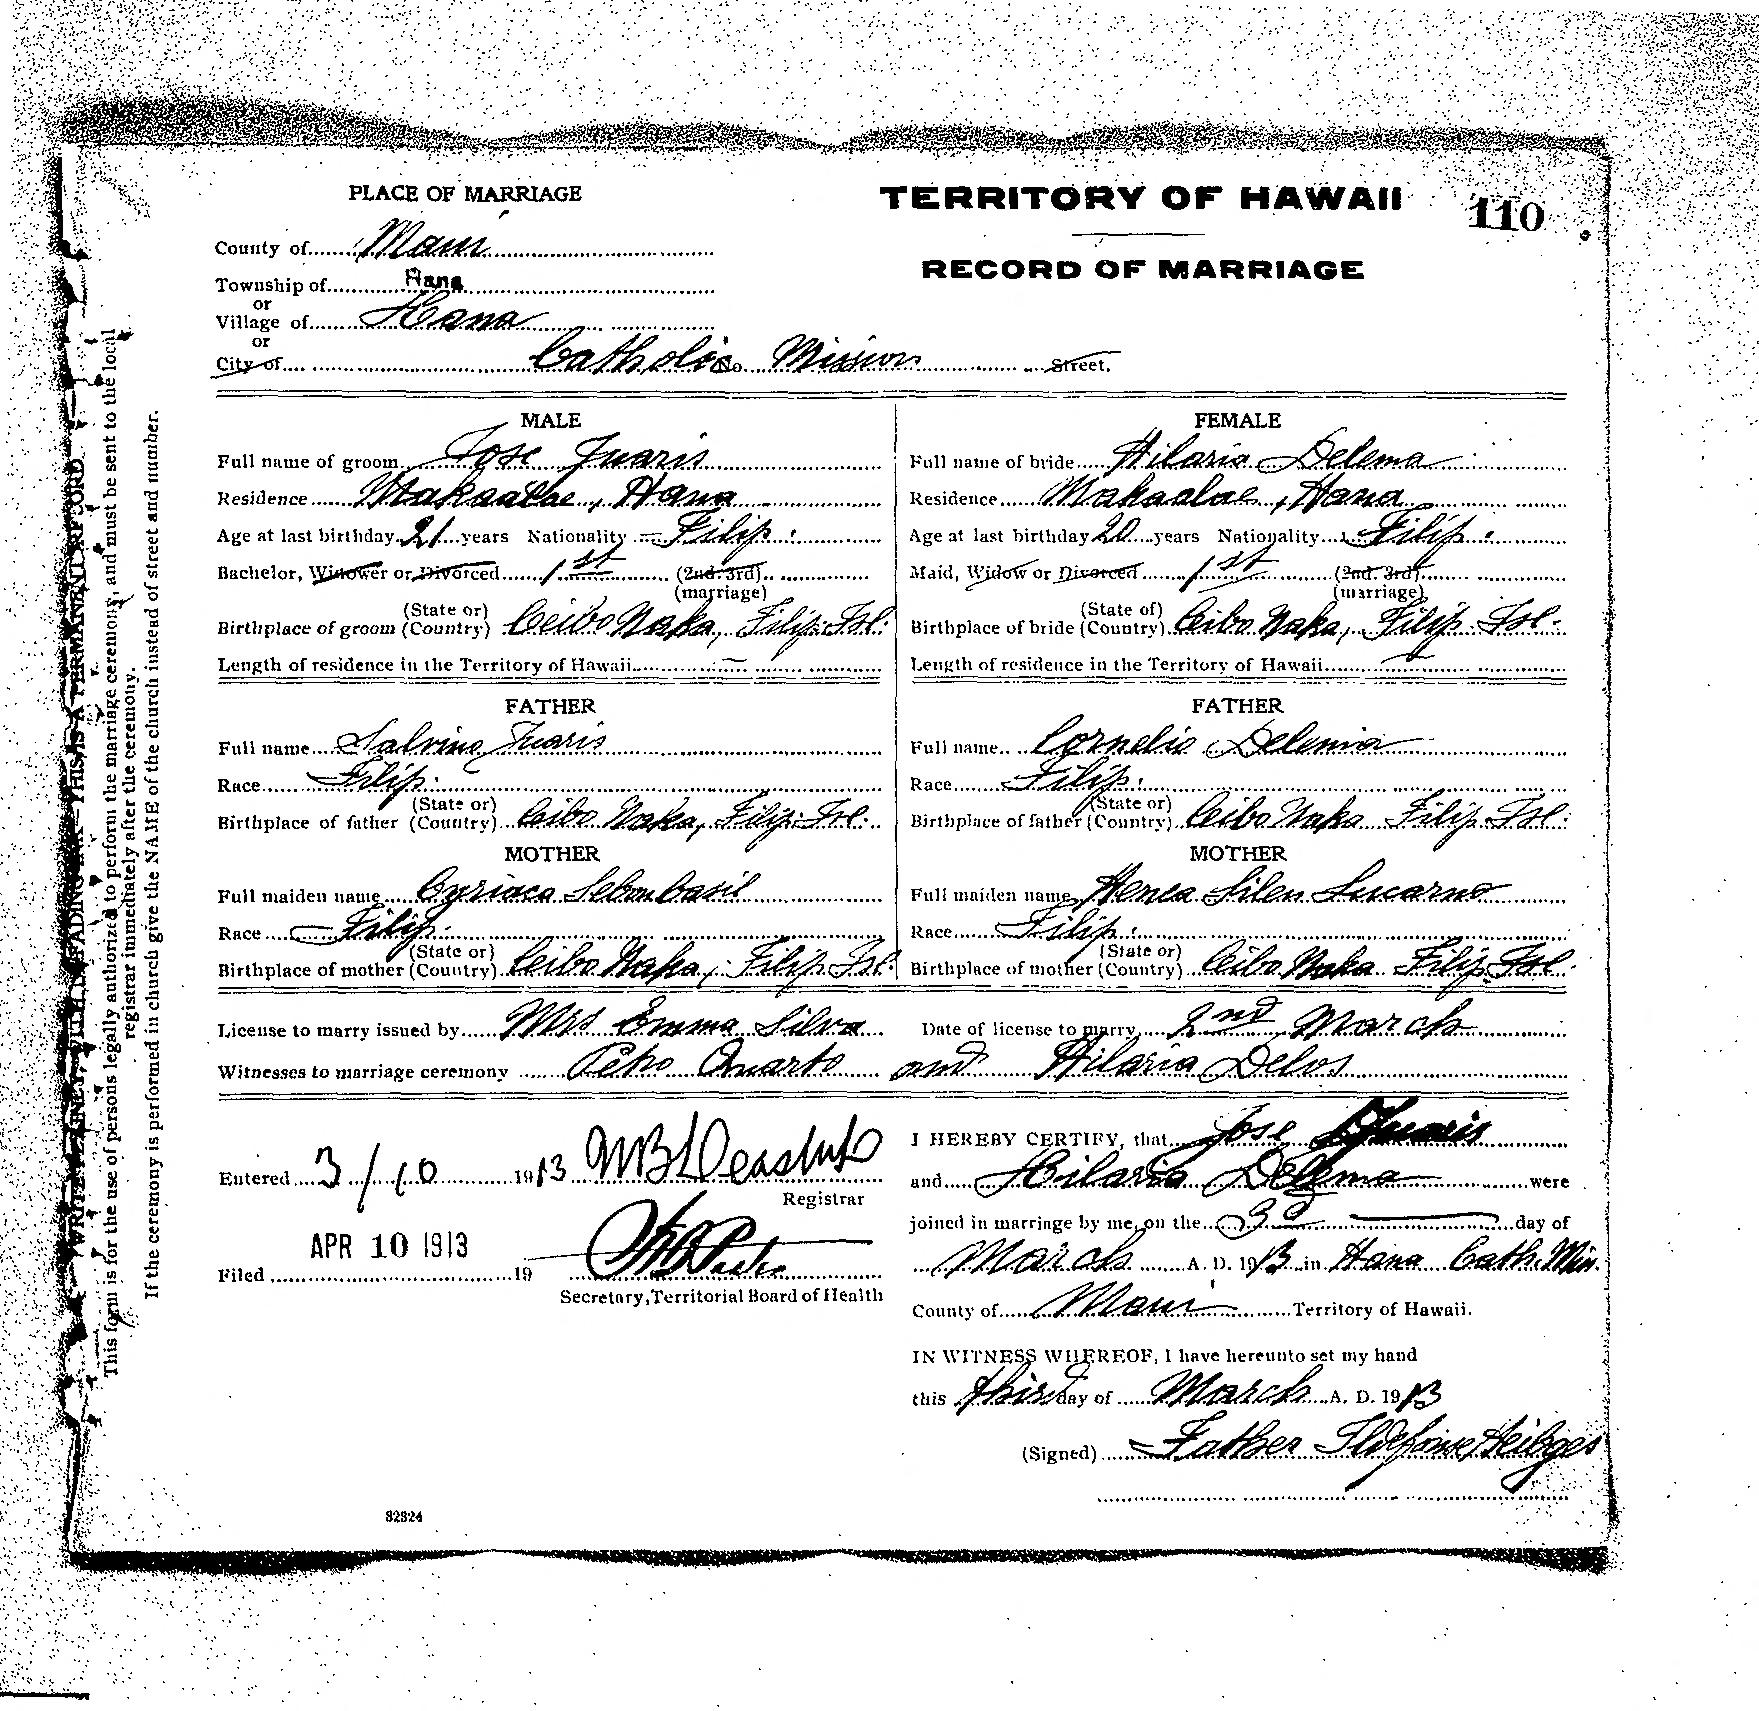 PLACE OF MARRIAGE
TERRITORY OF HAWAII
110
County of Maui
RECORD OF MARRIAGE
Township of Hana
or
Village of Hana
or
City of Catholic No. Mission Street.
MALE
Full name of groom Jose Juaris
Residence Makaalae, Hana
Age at last birthday 21 years Nationality Filip.
Bachelor, Widower or Divorced 1st (2nd. 3rd)
(marriage)
Birthplace of groom (State or Country) Ceibo Naka, Filip. Isl.
Length of residence in the Territory of Hawaii —
FATHER
Full name Salvino Juaris
Race Filip.
Birthplace of father (State or Country) Ceibo Naka, Filip. Isl.
MOTHER
Full maiden name Cyriaca
Race Filip.
Birthplace of mother (State or Country) Ceibo Naka, Filip. Isl.
FEMALE
Full name of bride Hilaria Delema
Residence Makaalae, Hana
Age at last birthday 20 years Nationality Filip.
Maid, Widow or Divorced 1st (2nd. 3rd)
(marriage)
Birthplace of bride (State of Country) Ceibo Naka, Filip. Isl.
Length of residence in the Territory of Hawaii —
FATHER
Full name Cornelio Delema
Race Filip.
Birthplace of father (State or Country) Ceibo Naka Filip. Isl.
MOTHER
Full maiden name Silen Lucarno
Race Filip.
Birthplace of mother (State or Country) Ceibo Naka Filip. Isl.
License to marry issued by Mrs Emma Silva Date of license to marry 2nd March
Witnesses to marriage ceremony Petro Quarto and Hilaria Delos
Entered 3/10 1913
Registrar
APR 10 1913
Filed 19
Secretary, Territorial Board of Health
I HEREBY CERTIFY, that Jose Juaris
and Hilaria Delema were
joined in marriage by me, on the 3d day of
March A. D. 1913 in Hana Cath. Min.
County of Maui Territory of Hawaii.
IN WITNESS WHEREOF, I have hereunto set my hand
this third day of March A. D. 1913
(Signed) Father Ildefonse Heibges
32324
WRITE PLAINLY, WITH UNFADING INK—THIS IS A PERMANENT RECORD.
This form is for the use of persons legally authorized to perform the marriage ceremony, and must be sent to the local
registrar immediately after the ceremony.
If the ceremony is performed in church give the NAME of the church instead of street and number.